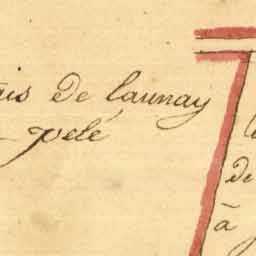 de launay
pelé
de
à